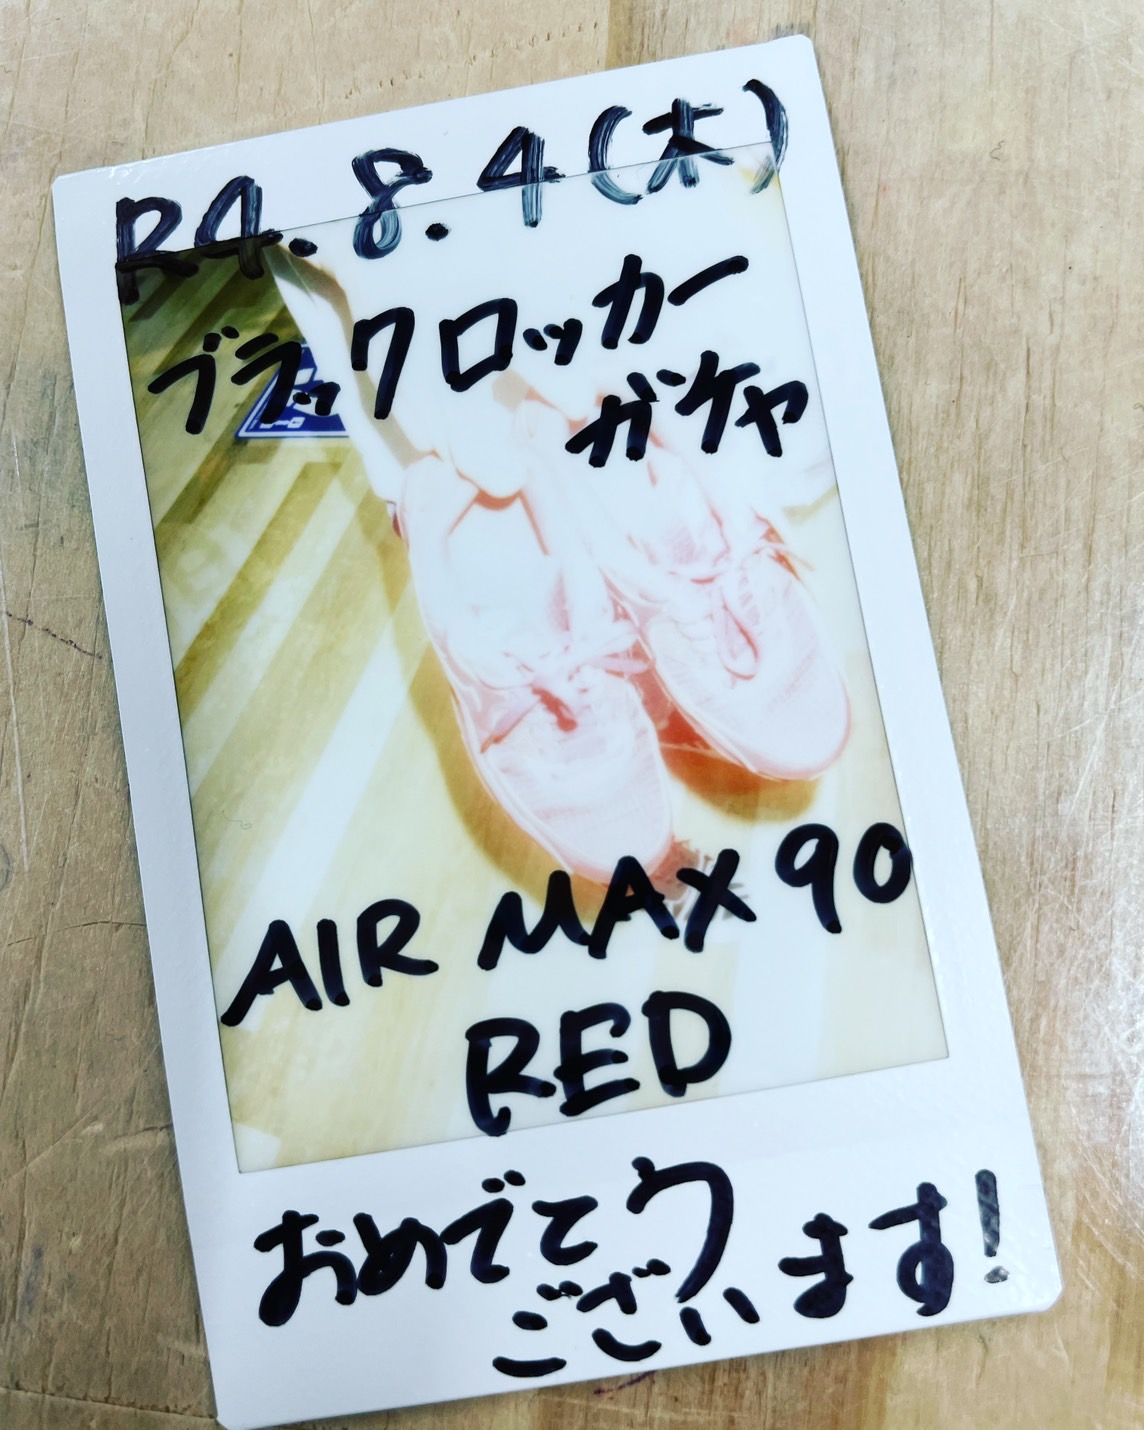 R4.8.4(木)
ブラックロッカー
ガチャ
AIR MAX 90
RED
おめでとう
ございます!